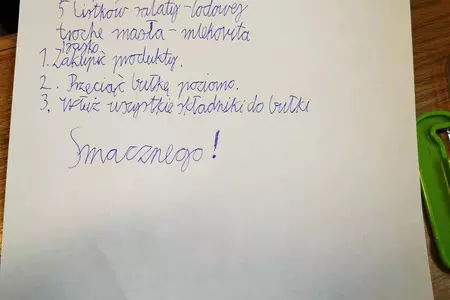 5 listków sałaty-lodowej
trochę masła-mlekovita
1. Zakupić produkty.
2. Przeciąć bułkę poziomo.
3. Włuż wszystkie składniki do bułki
Smacznego!